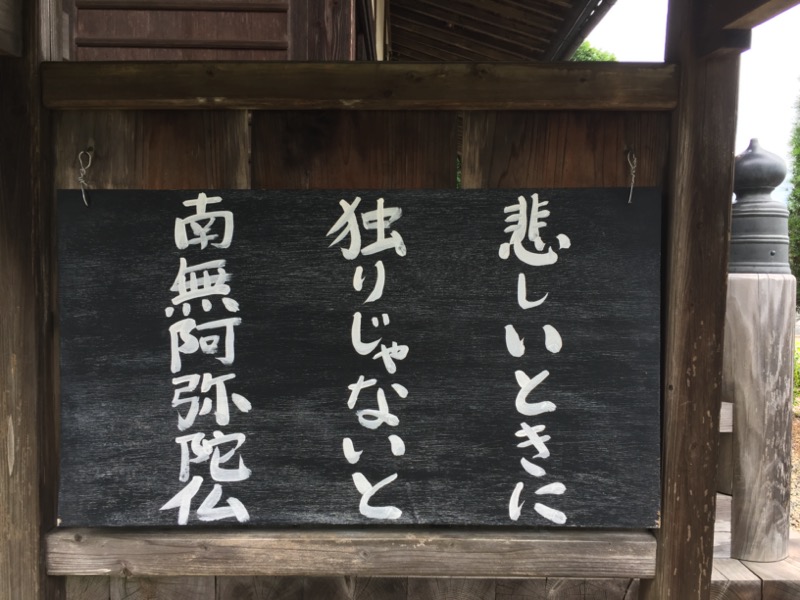 悲しいときに
独りじゃないと
南無阿弥陀仏